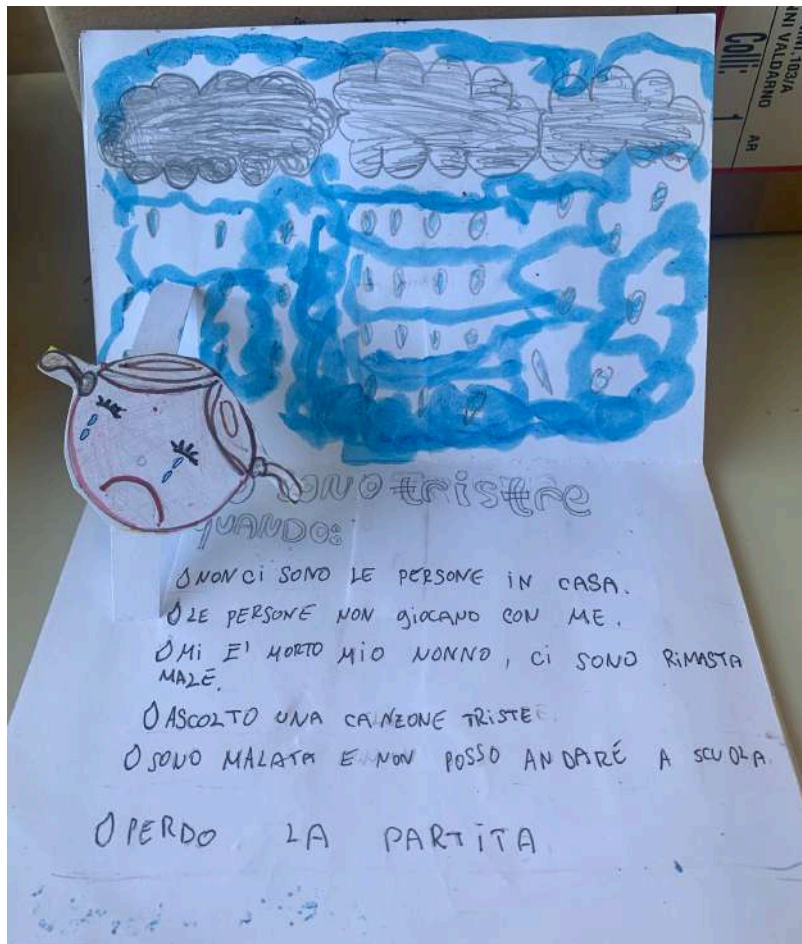 NNI VALDARNO AR
Colli: 1
SONO tristre
QUANDO:
NON Ci SONO LE PERSONE iN CASA.
LE PERSONE NON giOCANO CON ME.
Mi E' MORTO MiO NONNO, Ci SONO RiMASTA
MALE.
ASCOLTO UNA CANZONE TRiSTE
SONO MALATA E NON POSSO ANDARE A SCUOLA.
PERDO LA PARTiTA